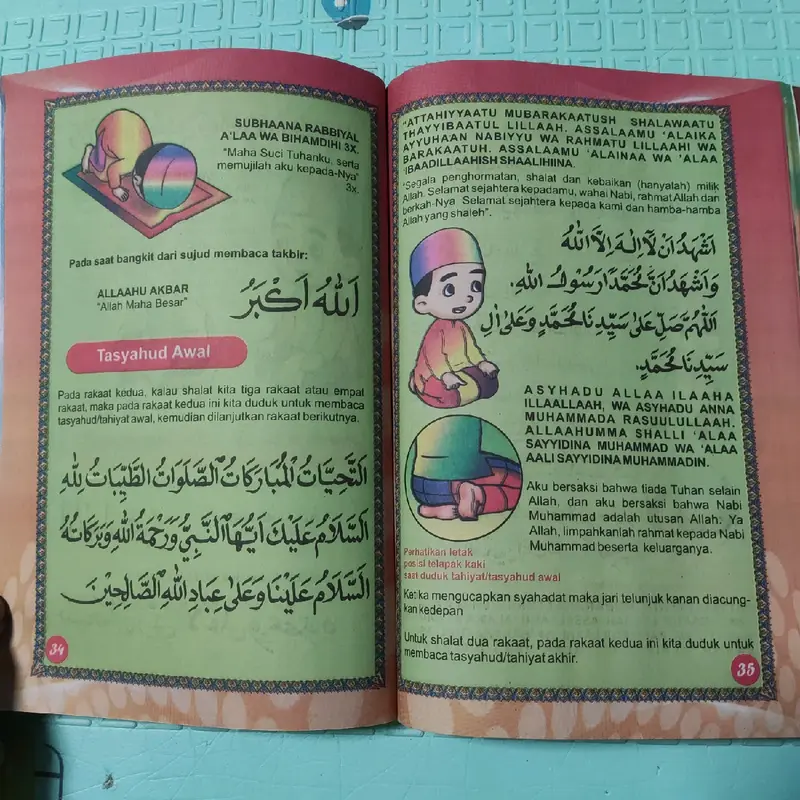 SUBHAANA RABBIYAL
A'LAA WA BIHAMDIHI 3X.
"Maha Suci Tuhanku, serta
memujilah aku kepada-Nya"
3x.
Pada saat bangkit dari sujud membaca takbir:
ALLAAHU AKBAR
"Allah Maha Besar"
اَللّٰهُ اَكْبَرُ
Tasyahud Awal
Pada rakaat kedua, kalau shalat kita tiga rakaat atau empat
rakaat, maka pada rakaat kedua ini kita duduk untuk membaca
tasyahud/tahiyat awal, kemudian dilanjutkan rakaat berikutnya.
اَلتَّحِيَّاتُ الْمُبَارَكَاتُ الصَّلَوَاتُ الطَّيِّبَاتُ لِلّٰهِ
اَلسَّلَامُ عَلَيْكَ اَيُّهَا النَّبِيُّ وَرَحْمَةُ اللّٰهِ وَبَرَكَاتُهُ
اَلسَّلَامُ عَلَيْنَا وَعَلٰى عِبَادِ اللّٰهِ الصَّالِحِيْنَ
34
"ATTAHIYYAATU MUBARAKAATUSH SHALAWAATU
THAYYIBAATUL LILLAAH. ASSALAAMU 'ALAIKA
AYYUHAAN NABIYYU WA RAHMATU LILLAAHI WA
BARAKAATUH. ASSALAAMU 'ALAINAA WA 'ALAA
'IBAADILLAAHISH SHAALIHIINA.
"Segala penghormatan, shalat dan kebaikan (hanyalah) milik
Allah. Selamat sejahtera kepadamu, wahai Nabi, rahmat Allah dan
berkah-Nya Selamat sejahtera kepada kami dan hamba-hamba
Allah yang shaleh".
اَشْهَدُ اَنْ لَّا اِلٰهَ اِلَّا اللّٰهُ
وَاَشْهَدُ اَنَّ مُحَمَّدًا رَسُوْلُ اللّٰهِ.
اَللّٰهُمَّ صَلِّ عَلٰى سَيِّدِنَا مُحَمَّدٍ وَعَلٰى اٰلِ
سَيِّدِنَا مُحَمَّدٍ.
ASYHADU ALLAA ILAAHA
ILLAALLAAH, WA ASYHADU ANNA
MUHAMMADA RASUULULLAAH.
ALLAAHUMMA SHALLI 'ALAA
SAYYIDINA MUHAMMAD WA 'ALAA
AALI SAYYIDINA MUHAMMADIN.
Aku bersaksi bahwa tiada Tuhan selain
Allah, dan aku bersaksi bahwa Nabi
Muhammad adalah utusan Allah. Ya
Allah, limpahkanlah rahmat kepada Nabi
Muhammad beserta keluarganya.
Perhatikan letak
posisi telapak kaki
saat duduk tahiyat/tasyahud awal
Ketika mengucapkan syahadat maka jari telunjuk kanan diacung-
kan kedepan
Untuk shalat dua rakaat, pada rakaat kedua ini kita duduk untuk
membaca tasyahud/tahiyat akhir.
35